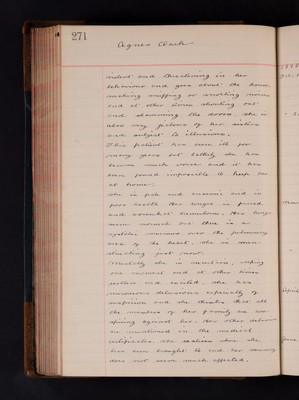 271
Agnes Clark
violent and threatening in her
behaviour and goes about the house
making sniffing or snorting noises
and at other times shouting out
and slamming the doors. She is
also very jealous of her sisters
and subject to illusions.
This patient has been ill for
many years but lately she has
become much worse and it has
been found impossible to keep her
at home.
She is pale and anaemic and in
poor health. Her tongue is furred
and somewhat tremulous. Her lungs
seem normal but there is a
systolic murmur over the pulmonary
area of the heart. She is men-
struating just now.
Mentally she is
one moment and at other times
restless and excited. She has
numerous delusions especially of
suspicion and she thinks that all
the members of her family are con-
spiring against her. Her other delusions
are mentioned in the medical
certificates. She realises where she
has been brought to and her memory
does not seem much affected.